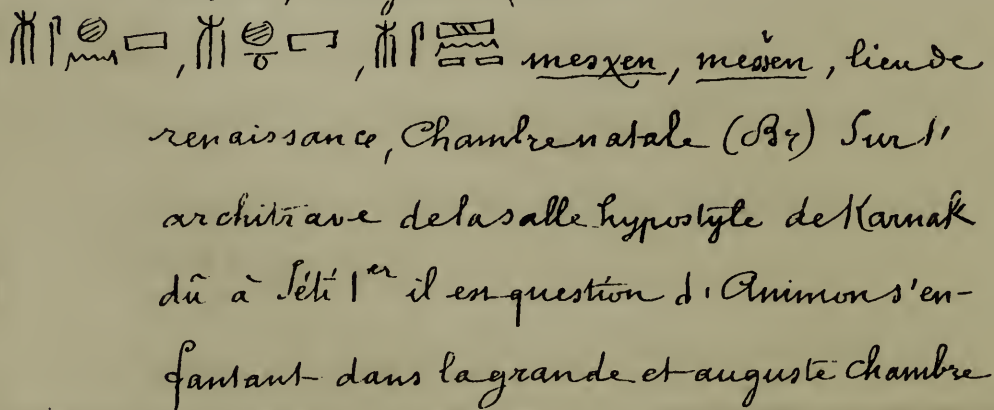 𓄟𓋴𓐍𓈖𓉐, 𓄟𓐍𓏌𓉐, 𓄟𓋴𓈙𓈖 mesχen, mes̆en, lieu de
renaissance, Chambre natale (Br) Sur l'
architrave de la salle hypostyle de Karnak
dû à Séti 1er il est question d'Ammon s'en-
fantant dans la grande et auguste chambre